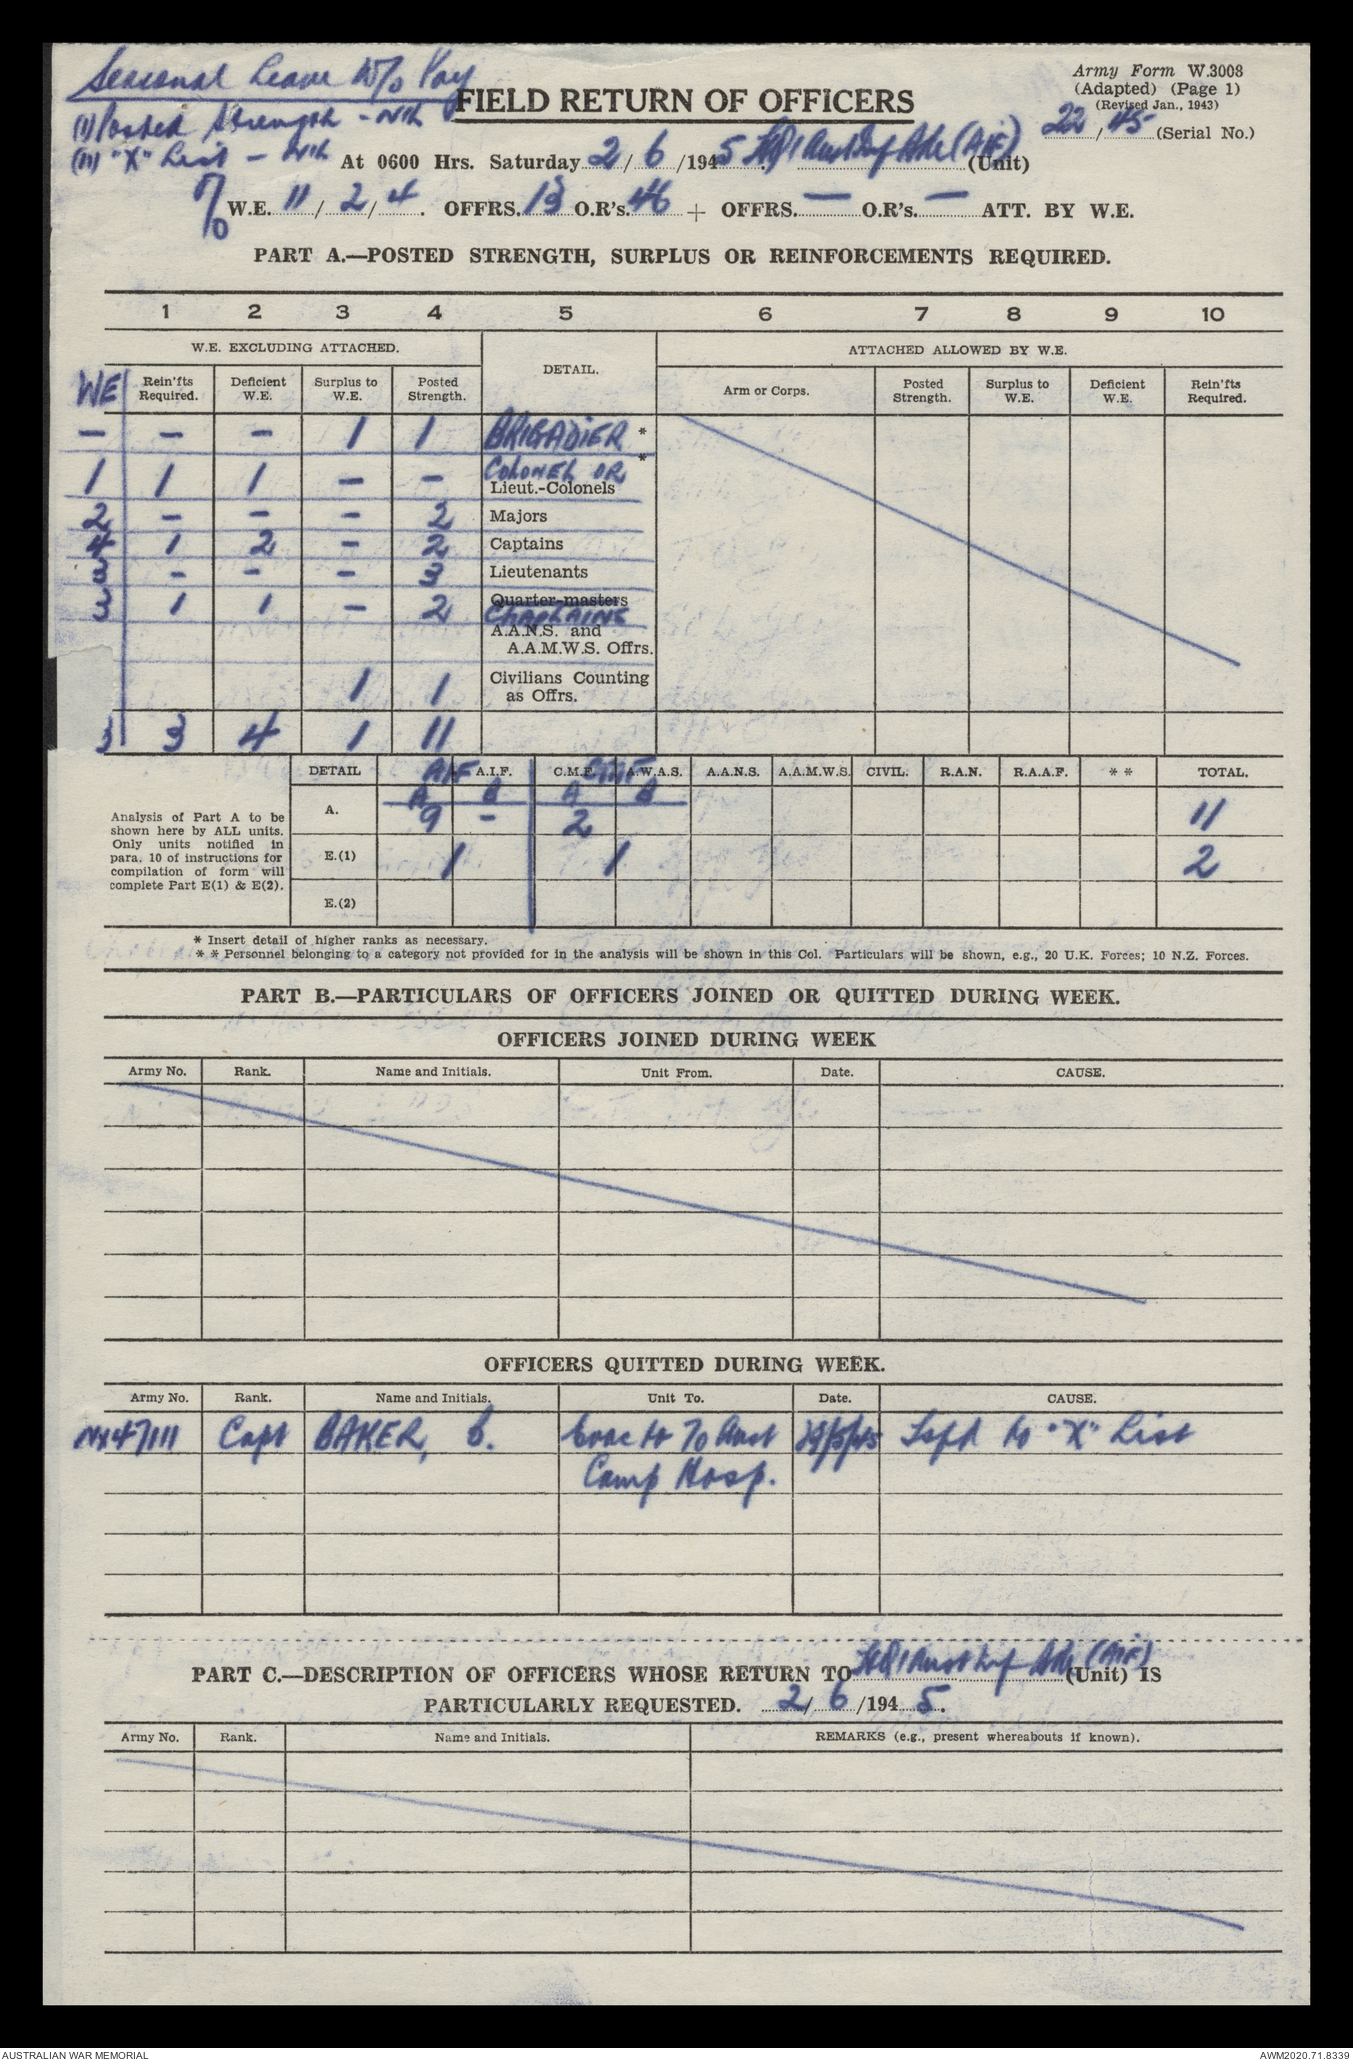 Seasonal Leave W/o Pay
(I) Posted Strength - Nil
(II) "X" List - Nil
FIELD RETURN OF OFFICERS
Army Form W.3008
(Adapted) (Page 1)
(Revised Jan., 1943)
22/45 (Serial No.)
At 0600 Hrs. Saturday 2/6/1945 HQ 1 Aust Inf Bde (AIF) (Unit)
W.E. 11/2/4. OFFRS. 13 O.R's. 46 + OFFRS. — O.R's. — ATT. BY W.E.
PART A.—POSTED STRENGTH, SURPLUS OR REINFORCEMENTS REQUIRED.
1 2 3 4 5 6 7 8 9 10
W.E. EXCLUDING ATTACHED. DETAIL. ATTACHED ALLOWED BY W.E.
WE Rein'fts Required. Deficient W.E. Surplus to W.E. Posted Strength. Arm or Corps. Posted Strength. Surplus to W.E. Deficient W.E. Rein'fts Required.
— — — 1 1 BRIGADIER *
1 1 1 — — COLONEL OR * Lieut.-Colonels
2 — — — 2 Majors
4 1 2 — 2 Captains
3 — — — 3 Lieutenants
3 1 1 — 2 Quarter-masters CHAPLAINS
A.A.N.S. and
A.A.M.W.S. Offrs.
1 1 Civilians Counting
as Offrs.
3 3 4 1 11
DETAIL AIF A.I.F. C.M.F. CMF A.W.A.S. A.A.N.S. A.A.M.W.S. CIVIL. R.A.N. R.A.A.F. * * TOTAL.
A B A B
A. 9 - 2 11
E.(1) 1 1 2
E.(2)
Analysis of Part A to be
shown here by ALL units.
Only units notified in
para. 10 of instructions for
compilation of form will
complete Part E(1) & E(2).
* Insert detail of higher ranks as necessary.
* * Personnel belonging to a category not provided for in the analysis will be shown in this Col. Particulars will be shown, e.g., 20 U.K. Forces; 10 N.Z. Forces.
PART B.—PARTICULARS OF OFFICERS JOINED OR QUITTED DURING WEEK.
OFFICERS JOINED DURING WEEK
Army No. Rank. Name and Initials. Unit From. Date. CAUSE.
OFFICERS QUITTED DURING WEEK.
Army No. Rank. Name and Initials. Unit To. Date. CAUSE.
NX47111 Capt BAKER, E. Evac to 70 Aust 29/5/45 Tsfd to "X" List
Camp Hosp.
PART C.—DESCRIPTION OF OFFICERS WHOSE RETURN TO HQ 1 Aust Inf Bde (AIF) (Unit) IS
PARTICULARLY REQUESTED. 2/6/1945.
Army No. Rank. Name and Initials. REMARKS (e.g., present whereabouts if known).
AUSTRALIAN WAR MEMORIAL
AWM2020.71.8339